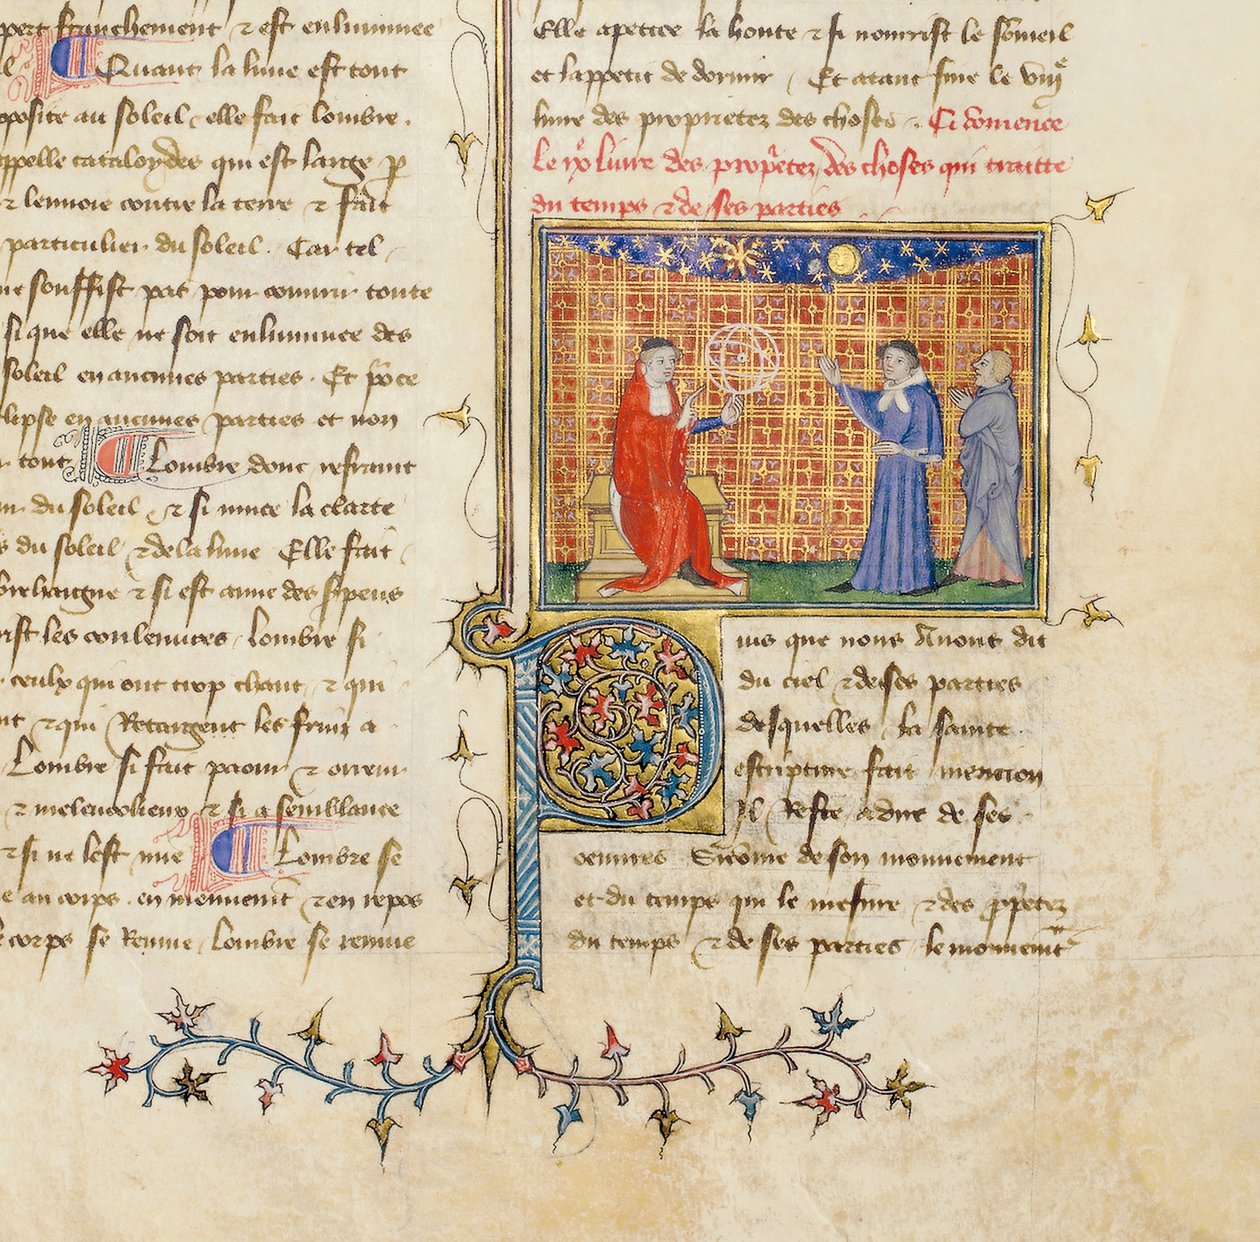 appert franchement & est enluminee
Quant la lune est tout
opposite au soleil / elle fait lombre .
appelle cataloydes qui est large p
& lennoie contre la terre & fait
particulier du soleil . Car tel
ne souffist pas pour couurir toute
si que elle ne soit enluminee des
soleil en aucunes parties . Et po ce
clipse en aucunes parties et non
tout Lombre donc refraint
du soleil / & si mue la clarte
du soleil / & de la lune Elle fait
brehaigne & si est amie des serpens
les couleuures / lombre si
ceulx qui ont trop chaut / & qui
& qui Retargent les fruiz a
Lombre si fait paour & orreur
& melencolieux & si a semblance
& si ne lest mie Lombre se
au corps . en mouuement & en repos
corps se Remue / lombre se remue
Elle apetice la honte & si nourrist le someil
et lappetit de dormir / Et atant fine le viije
liure des proprietez des choses . Ci comence
Le ixe liure des propietez des choses qui traitte
du temps & de ses parties
uis que nous Auons dit
du ciel & de ses parties
desquelles la sainte
escripture fait mencion
Il Reste a dire de ses
oeuures Si come de son mouuement
et du temps qui le mesure & des propetez
du temps & de ses parties le mouuement